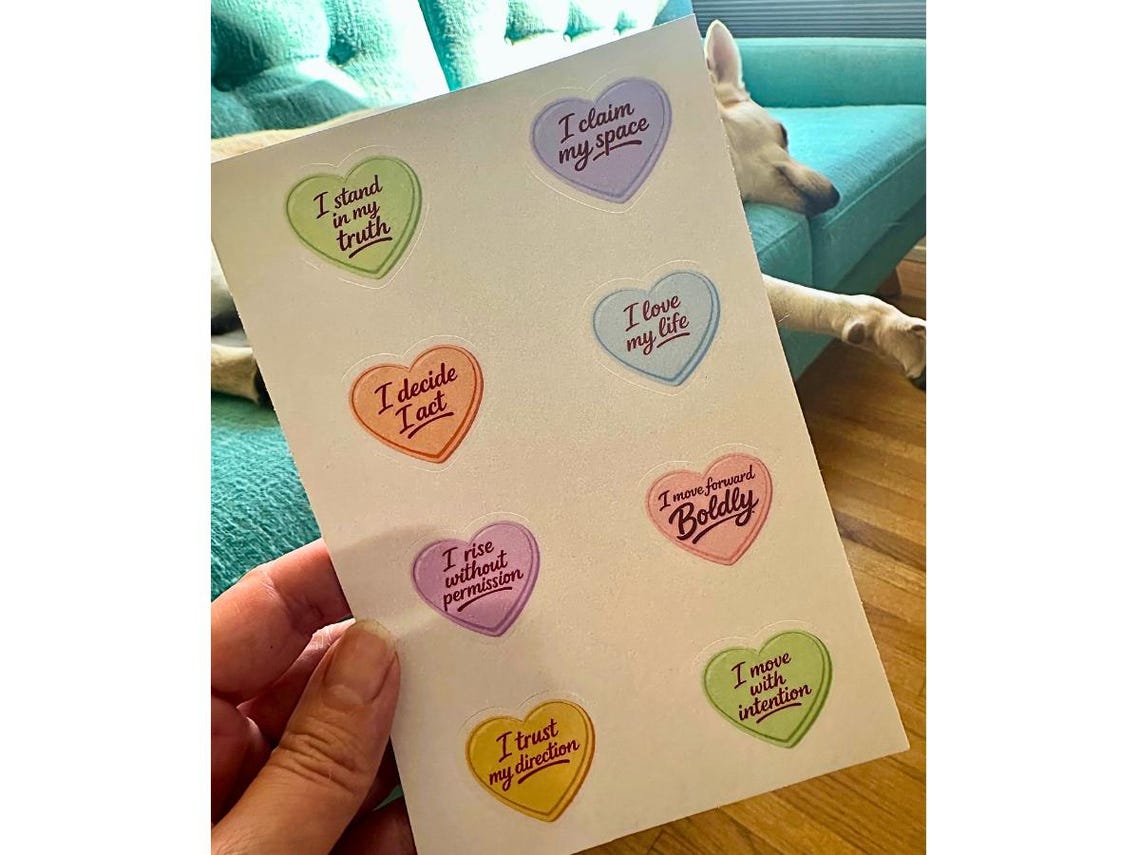 I claim
my space
I stand
in my
truth
I love
my life
I decide
I act
I move forward
Boldly
I rise
without
permission
I move
with
intention
I trust
my direction